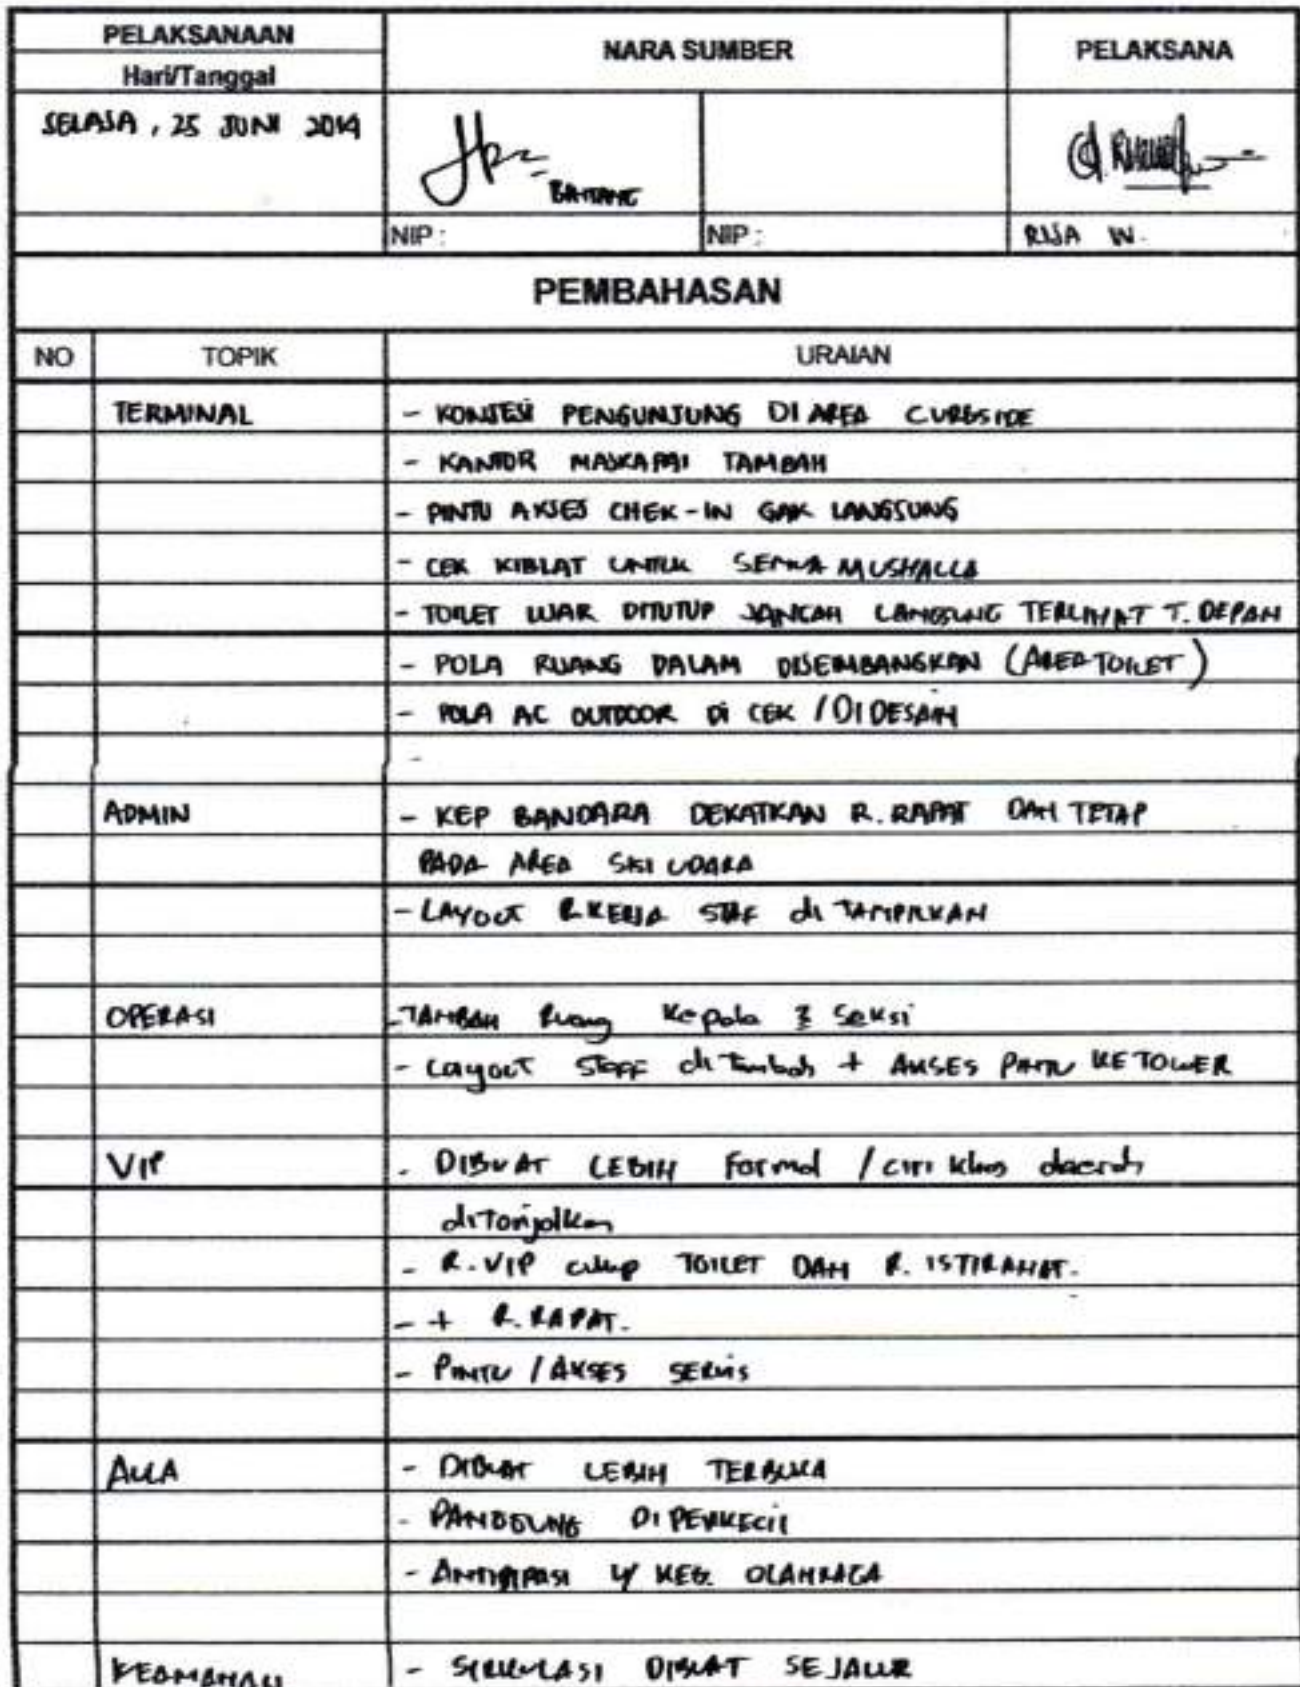 PELAKSANAAN
Hari/Tanggal
NARA SUMBER
PELAKSANA
SELASA, 25 JUNI 2014
BAITANG
NIP :
NIP :
RIJA W.
PEMBAHASAN
NO TOPIK URAIAN
TERMINAL - KONJESI PENGUNJUNG DI AREA CURBSIDE
- KANTOR MASKAPAI TAMBAH
- PINTU AKSES CHEK-IN GAK LANGSUNG
- CEK KIBLAT UNTUK SEMUA MUSHALLA
- TOILET LUAR DITUTUP JANGAN LANGSUNG TERLIHAT T. DEPAN
- POLA RUANG DALAM DISEIMBANGKAN (AREA TOILET)
- POLA AC OUTDOOR DI CEK / DI DESAIN
-
ADMIN - KEP BANDARA DEKATKAN R. RAPAT DAN TETAP
PADA AREA SISI UDARA
- LAYOUT R.KERJA STAF di TAMPILKAN
OPERASI - TAMBAH Ruang Kepala 3 Seksi
- Layout STAFF di Tambah + AKSES PINTU KE TOWER
VIP - DIBUAT LEBIH Formal / ciri khas daerah
ditonjolkan
- R. VIP cukup TOILET DAN R. ISTIRAHAT.
- + R. RAPAT.
- PINTU / AKSES SERVIS
AULA - DIBUAT LEBIH TERBUKA
- PANGGUNG DIPERKECIL
- ANTISIPASI U/ KEG. OLAHRAGA
KEAMANAN - SIRKULASI DIBUAT SEJALUR